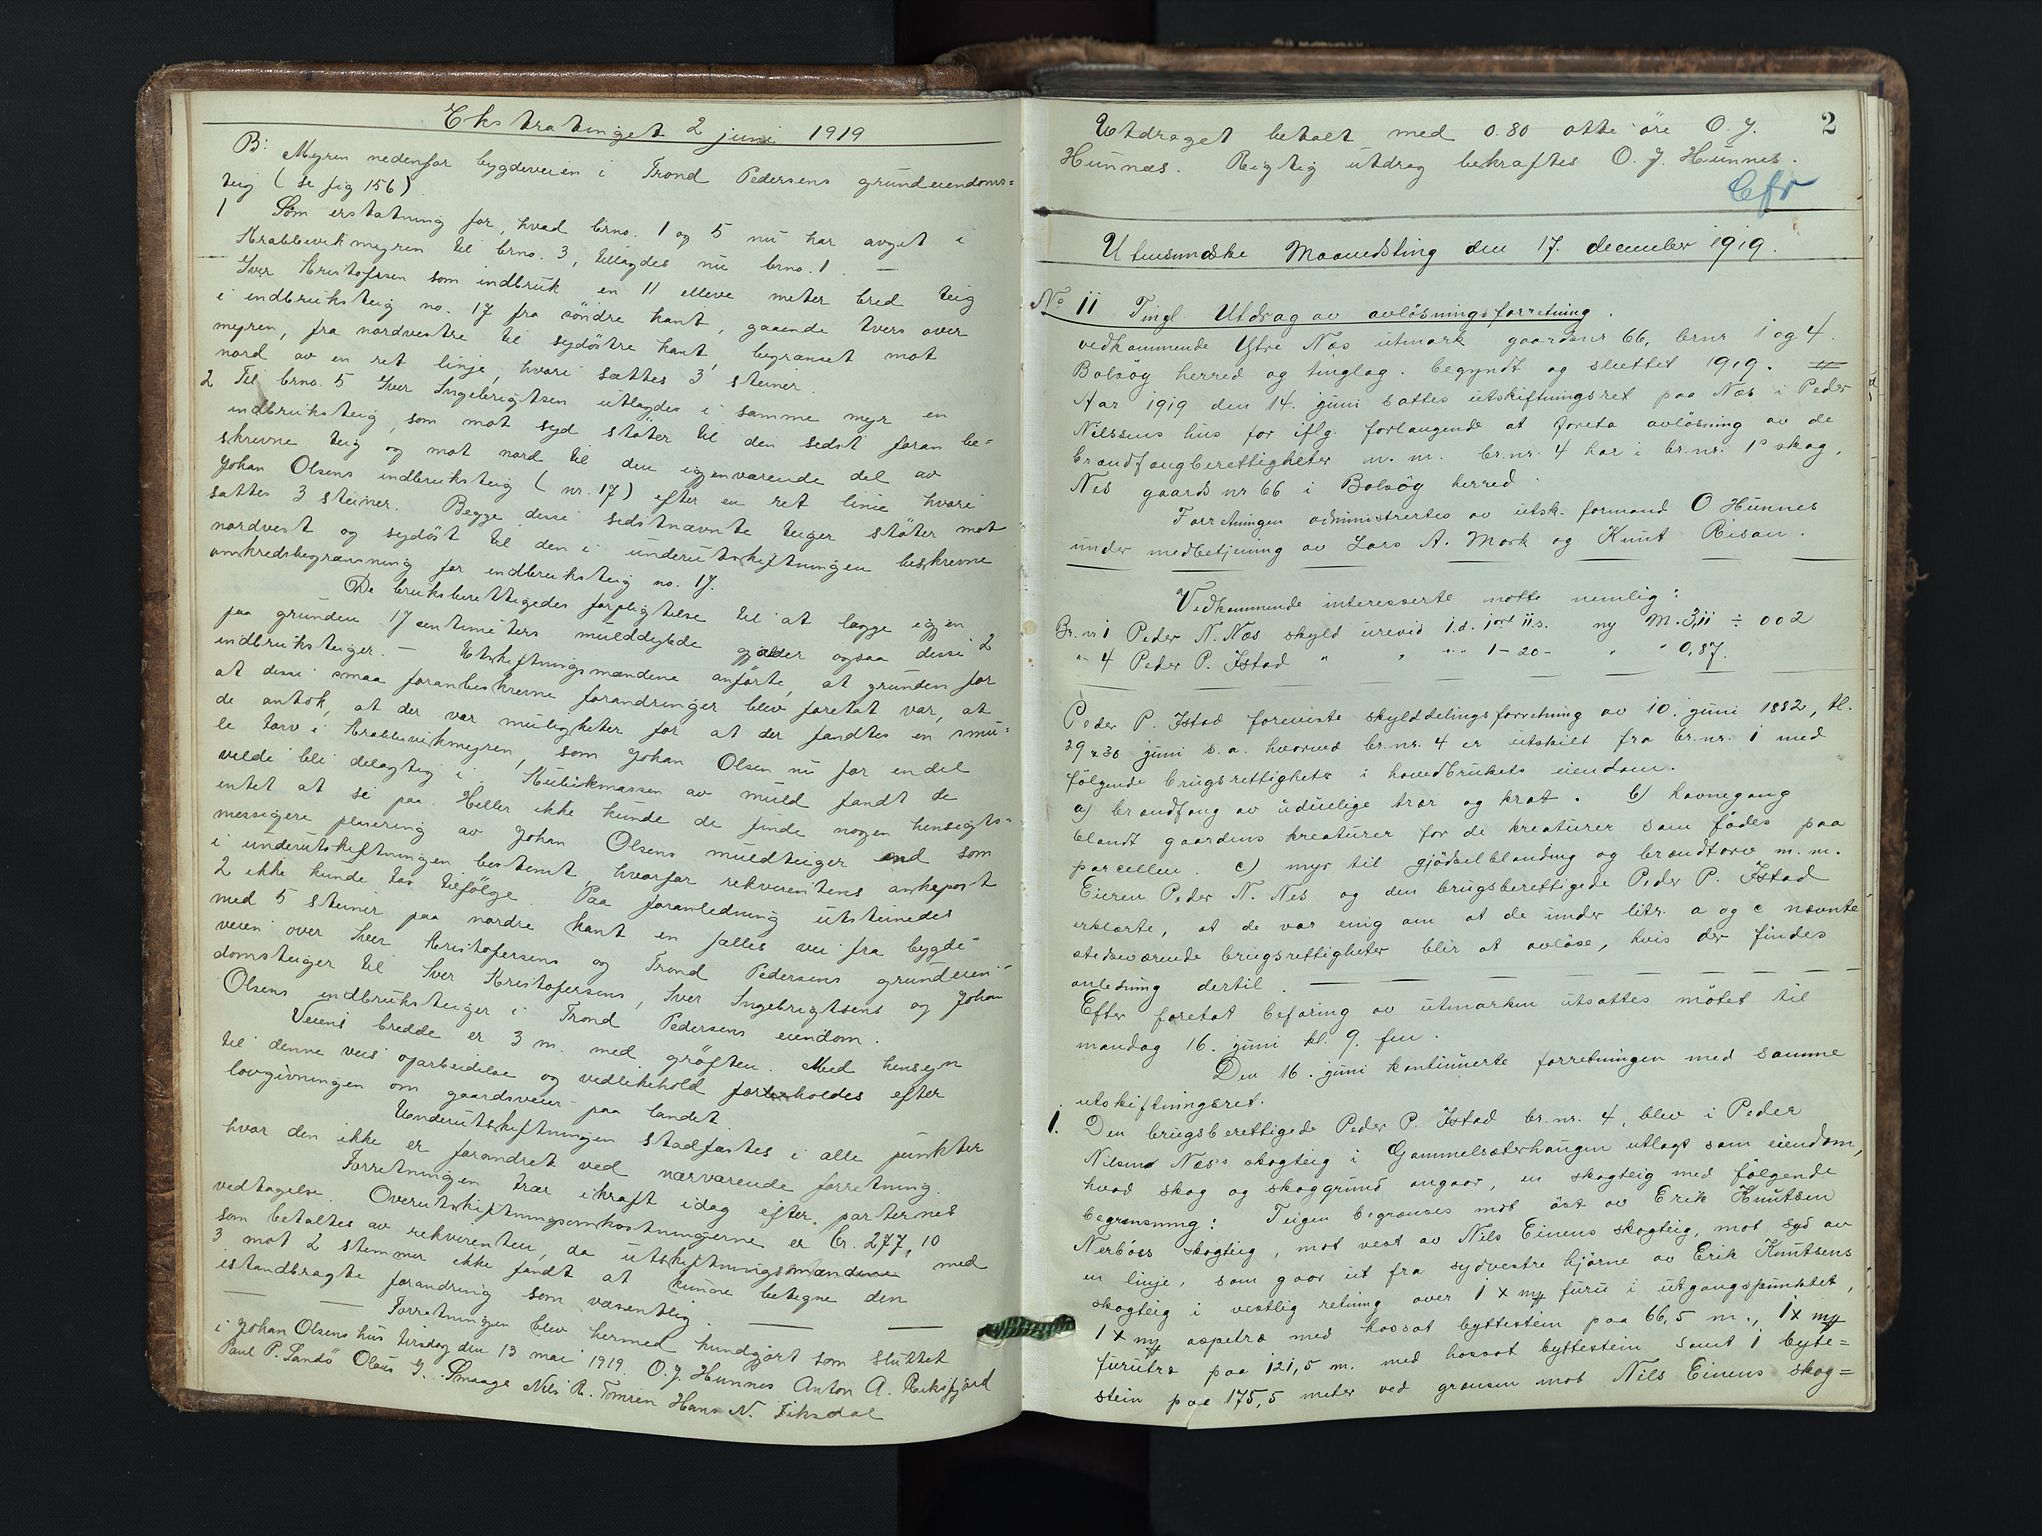 Ekstratinget 2 juni 1919
B: Myren nedenfor bygdeveien i Trond Pedersens grundeiendoms=
teig (se fig 156).
1 Som erstatning for, hvad brno. 1 og 5 nu har avget i
Krabbevikmyren til brno. 3, tillagdes nu brno. 1. —
Iver Kristofersen som indbruk en 11 elleve meter bred teig
i indbruksteig no. 17 fra søndre kant, gaaende tvers over
myren, fra nordvestre til sydøstre kant, begrænset mot
nord av en ret linje, hvori sættes 3 steiner.
2 Til brno. 5 Iver Ingebrigtsen utlagdes i samme myr en
indbruksteig, som mot syd støter til den sidst foran be=
skrevne teig og mot nord til den igjenværende del av
Johan Olsens indbruksteig (nr. 17) efter en ret linie hvori
sattes 3 steiner. Begge disse sidstnævnte teiger støter mot
nordvest og sydøst til den i underutskiftningen beskrevne
omkredsbegrænsning for indbruksteig no. 17.
De bruksberettigedes forpligtelse til at lægge igjen
paa grunden 17 centimeters mulddybde gjælder ogsaa disse 2
indbruksteiger. — Utskiftningsmændene anførte, at grunden for
at disse smaa foranbeskrevne forandringer blev foretat var, at
de antok, at der var muligheter for at der fandtes en smu=
le torv i Krabbevikmyren, som Johan Olsen nu for endel
vilde bli delagtig i. Kubikmassen av muld fandt de
intet at si paa. Heller ikke kunde de finde nogen hensigts=
messigere plasering av Johan Olsens muldteiger end som
i underutskiftningen bestemt, hvorfor rekvirentens ankepost
2 ikke kunde tas tilfølge. Paa foranledning utsteinedes
med 5 steiner paa nordre kant en fælles vei fra bygde-
veien over Iver Kristofersens og Trond Pedersens grundeien-
domsteiger til Iver Kristofersens, Iver Ingebrigtsens og Johan
Olsens indbruksteiger i Trond Pedersens eiendom.
Veiens bredde er 3 m. med grøften. Med hensyn
til denne veis oparbeidelse og vedlikehold forholdes efter
lovgivningen om gaardsveier paa landet.
Underutskiftningen stadfæstes i alle punkter
hvor den ikke er forandret ved nærværende forretning.
Forretningen trær ikraft idag efter parternes
vedtagelse. Overutskiftningsomkostningerne er kr. 277,10
som betaltes av rekvirenten, da utskiftningsmændene med
3 mot 2 stemmer ikke fandt at kunne betegne den
istandbragte forandring som væsentlig.
Forretningen blev hermed kundgjort som sluttet
i Johan Olsens hus tirsdag den 13 mai 1919. O. J. Hunnes Anton A. Reksfjord
Paul P. Sandø Olaus G. Smaage Nils R. Tomren Hans N. Fiksdal
2
Utdraget betalt med 0.80 otti øre O. J.
Hunnæs. Rigtig utdrag bekræftes O. J. Hunnes.
Cfr
Utensundske Maanedsting den 17. december 1919.
No 11 Tingl. Utdrag av avløsningsforretning.
vedkommende Ytre Næs utmark gaardsnr 66, brnr 1 og 4.
Bolsøy herred og tinglag. begyndt og sluttet 1919.
Aar 1919 den 14. juni sattes utskiftningsret paa Næs i Peder
Nilssens hus for iflg. forlangende at foreta avløsning av de
brændfangberettigheter m. m. br.nr. 4 har i br.nr. 1s skog,
Nes gaards nr 66 i Bolsøy herred.
Forretningen administrertes av utsk. formand O Hunnes
under medbetjening av Lars A. Mork og Knut Risan.
Vedkommende interesserte møtte nemlig:
Br. nr 1 Peder N. Næs skyld urevid 1.d. 1 ort 11 s. ny M. 3,11 ÷ 002
" 4 Peder P. Istad " " " 1-20- " " 0,87.
Peder P. Istad foreviste skylddelingsforretning av 10. juni 1882, tl.
29 & 30 juni s. a. hvorved br.nr. 4 er utskilt fra br.nr. 1 med
følgende brugsrettigheter i hovedbrukets eiendom.
a) brændfang av uduelige trær og krat. b) havnegang
blandt gaardens kreaturer for de kreaturer som fødes paa
parcellen. c) myr til gjødselblanding og brændtorv m. m.
Eieren Peder N. Nes og den brugsberettigede Peder P. Istad
erklærte, at de var enig om at de under litr. a og c nævnte
stedsevarende brugsrettigheter blir at avløse, hvis der findes
anledning dertil.
Efter foretat befaring av utmarken utsattes møtet til
mandag 16. juni kl. 9. fm.
Den 16. juni kontinuerte forretningen med samme
utskiftningsret.
1. Den brugsberettigede Peder P. Istad br. nr. 4, blev i Peder
Nilsens Næs's skogteig i Gammelsæterhaugen utlagt som eiendom,
hvad skog og skoggrund angaar, en skogteig med følgende
begrænsning: Teigen begrænses mot øst av Erik Knutsen
Nerbøss skogteig, mot vest av Nils Einens skogteig, mot syd av
en linje, som gaar ut fra sydvestre hjørne av Erik Knutsens
skogteig i vestlig retning over 1 x my furu i utgangspunktet,
1 x my aspetræ med hossat byttestein paa 66,5 m., 1 x my
furutræ paa 121,5 m. med hossat byttestein samt 1 bytte=
stein paa 175,5 meter ved grænsen mot Nils Einens skog=